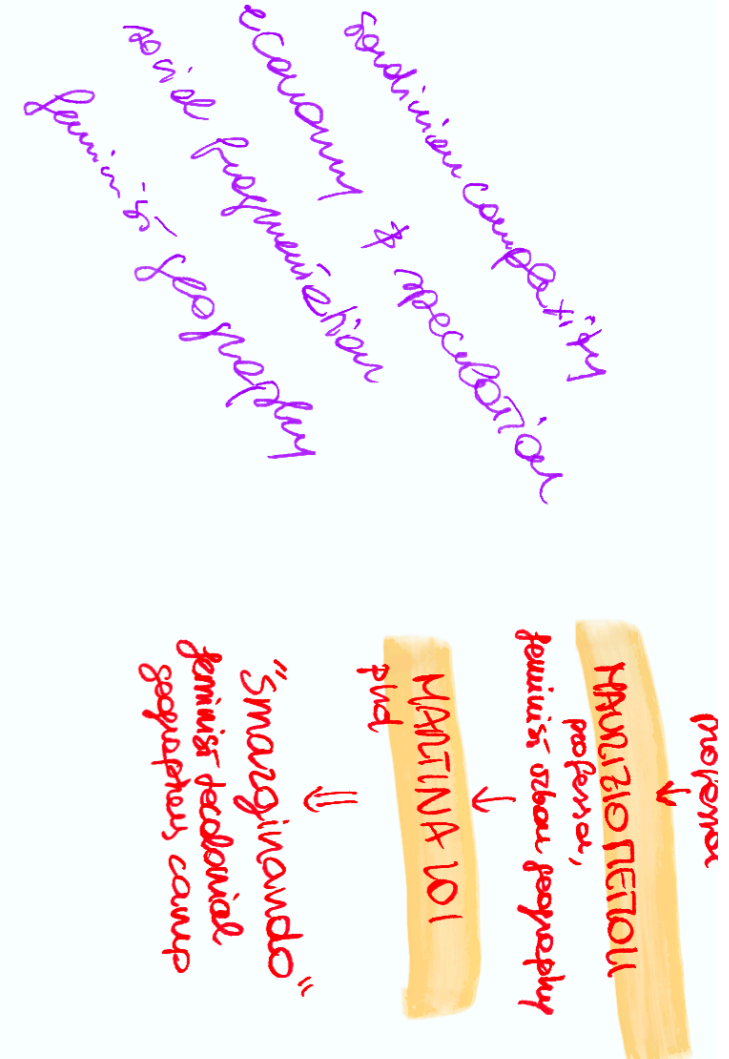 Sardinian complexity
economy & speculation
social fragmentation
feminist geography
professor
MAURIZIO MEMOLI
professor,
feminist urban geography
MARTINA LOI
phd
"Smarginando"
feminist decolonial
geographers camp